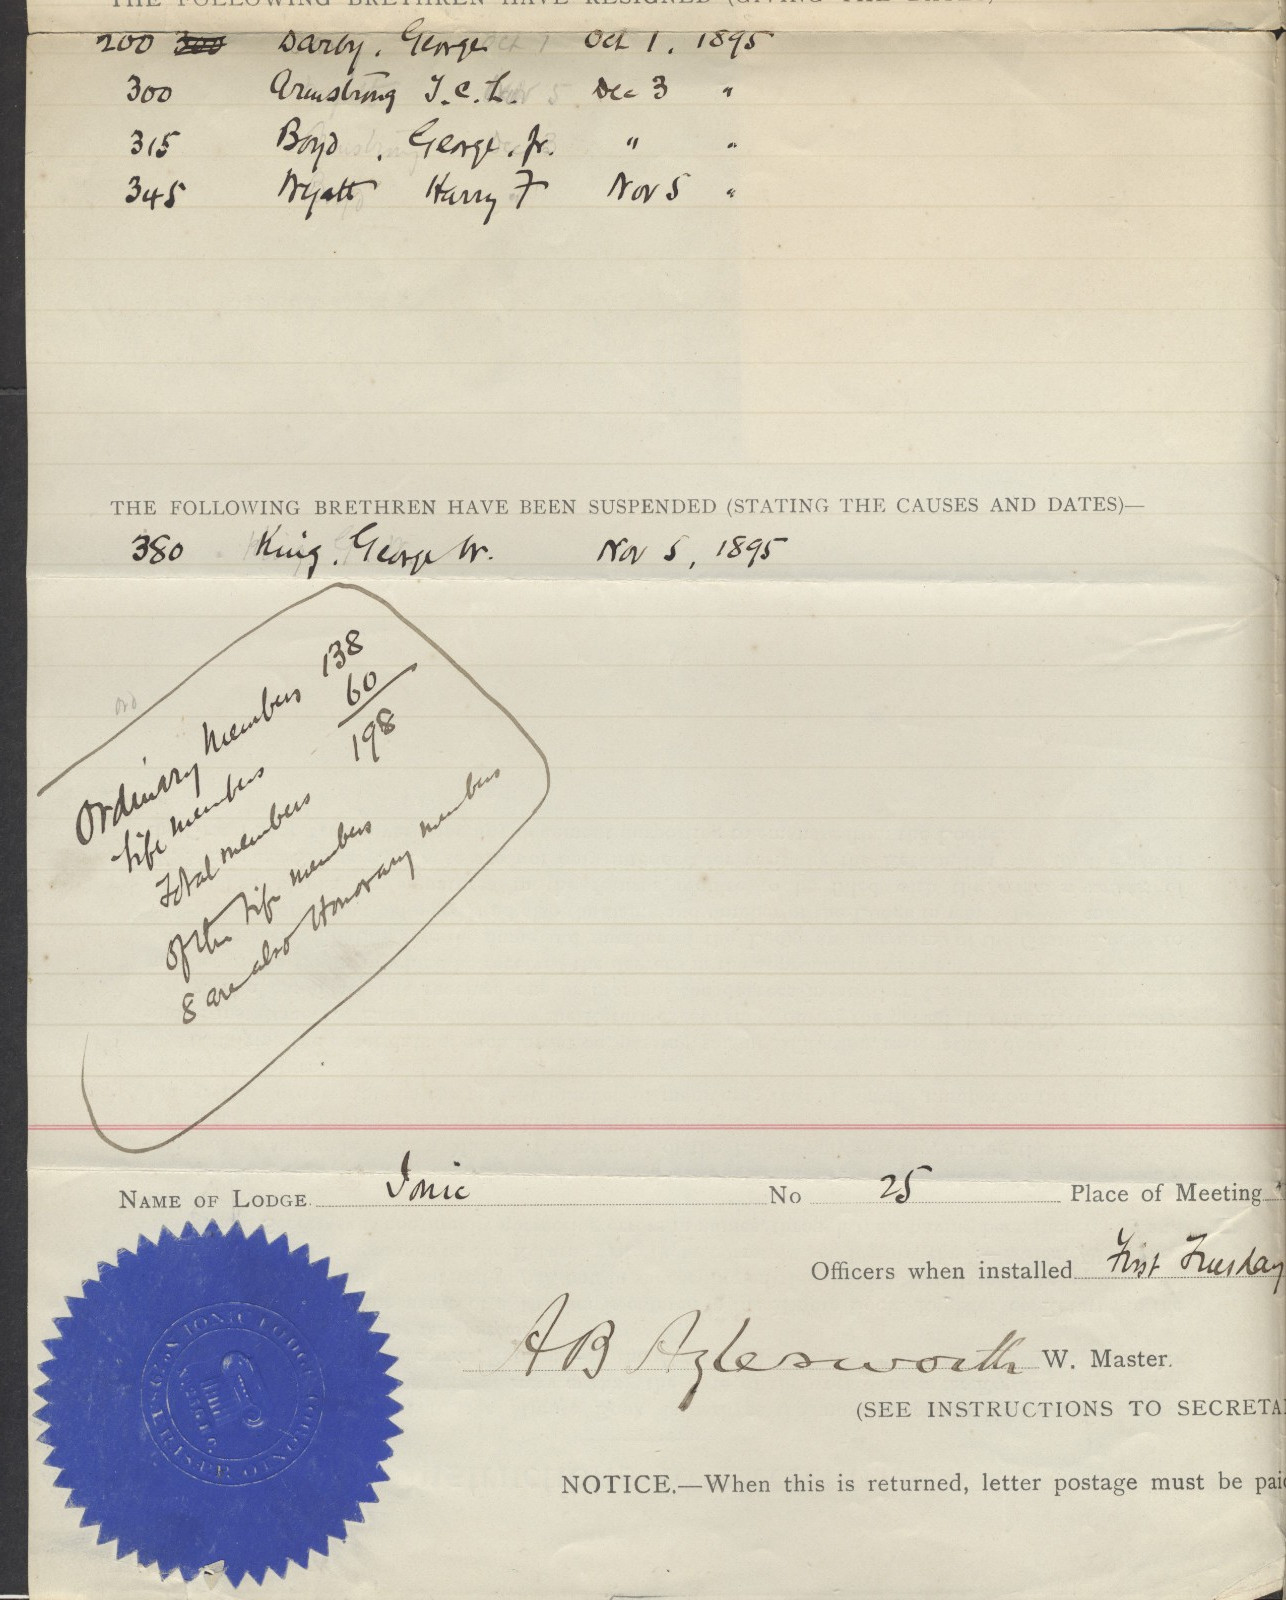 THE FOLLOWING BRETHREN HAVE RESIGNED (GIVING THE DATES)
200 300 Darby, George Oct 1, 1895
300 Armstrong T.C.L. Dec 3 "
315 Boyd, George, Jr. " "
345 Wyatt Harry F Nov 5 "
THE FOLLOWING BRETHREN HAVE BEEN SUSPENDED (STATING THE CAUSES AND DATES)—
380 King, George W. Nov 5, 1895
Ordinary Members 138
Life members 60
Total members 198
Of the Life members
8 are also Honorary members
NAME OF LODGE Ionic No 25 Place of Meeting
Officers when installed First Tuesday
A B Aylesworth W. Master.
(SEE INSTRUCTIONS TO SECRETA
NOTICE.—When this is returned, letter postage must be paid
IONIC LODGE
TORONTO